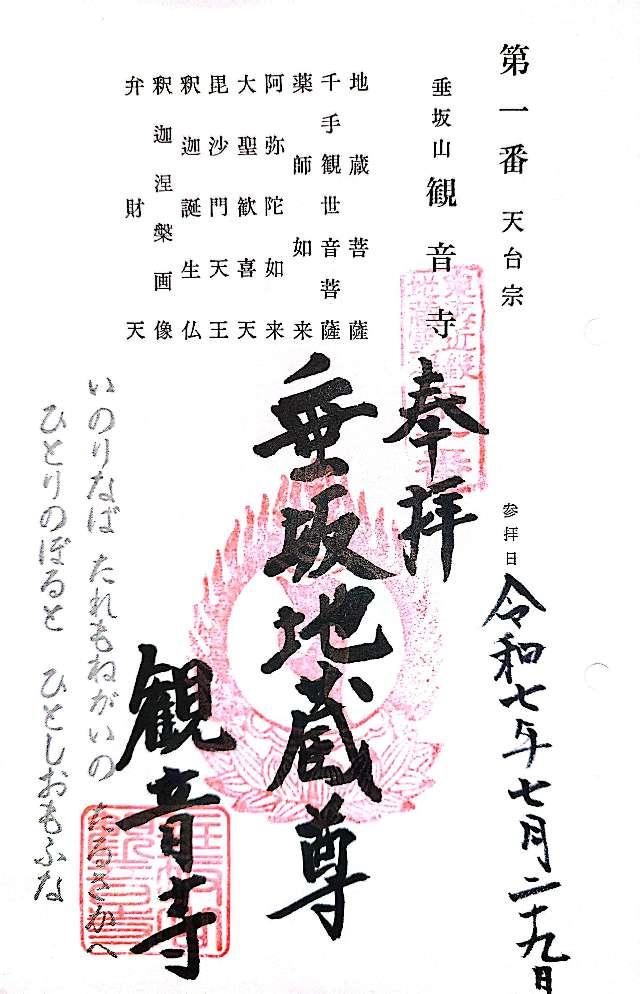 第一番 天台宗
垂坂山 観音寺
地蔵菩薩
千手観世音菩薩
薬師如来
阿弥陀如来
大聖歓喜天
毘沙門天王
釈迦誕生仏
釈迦涅槃画像
弁財天
参拝日 令和七年七月二十九日
奉拝
垂坂地蔵尊
観音寺
いのりなば たれもねがいの たるさかへ
ひとりのぼると ひとしおもふな